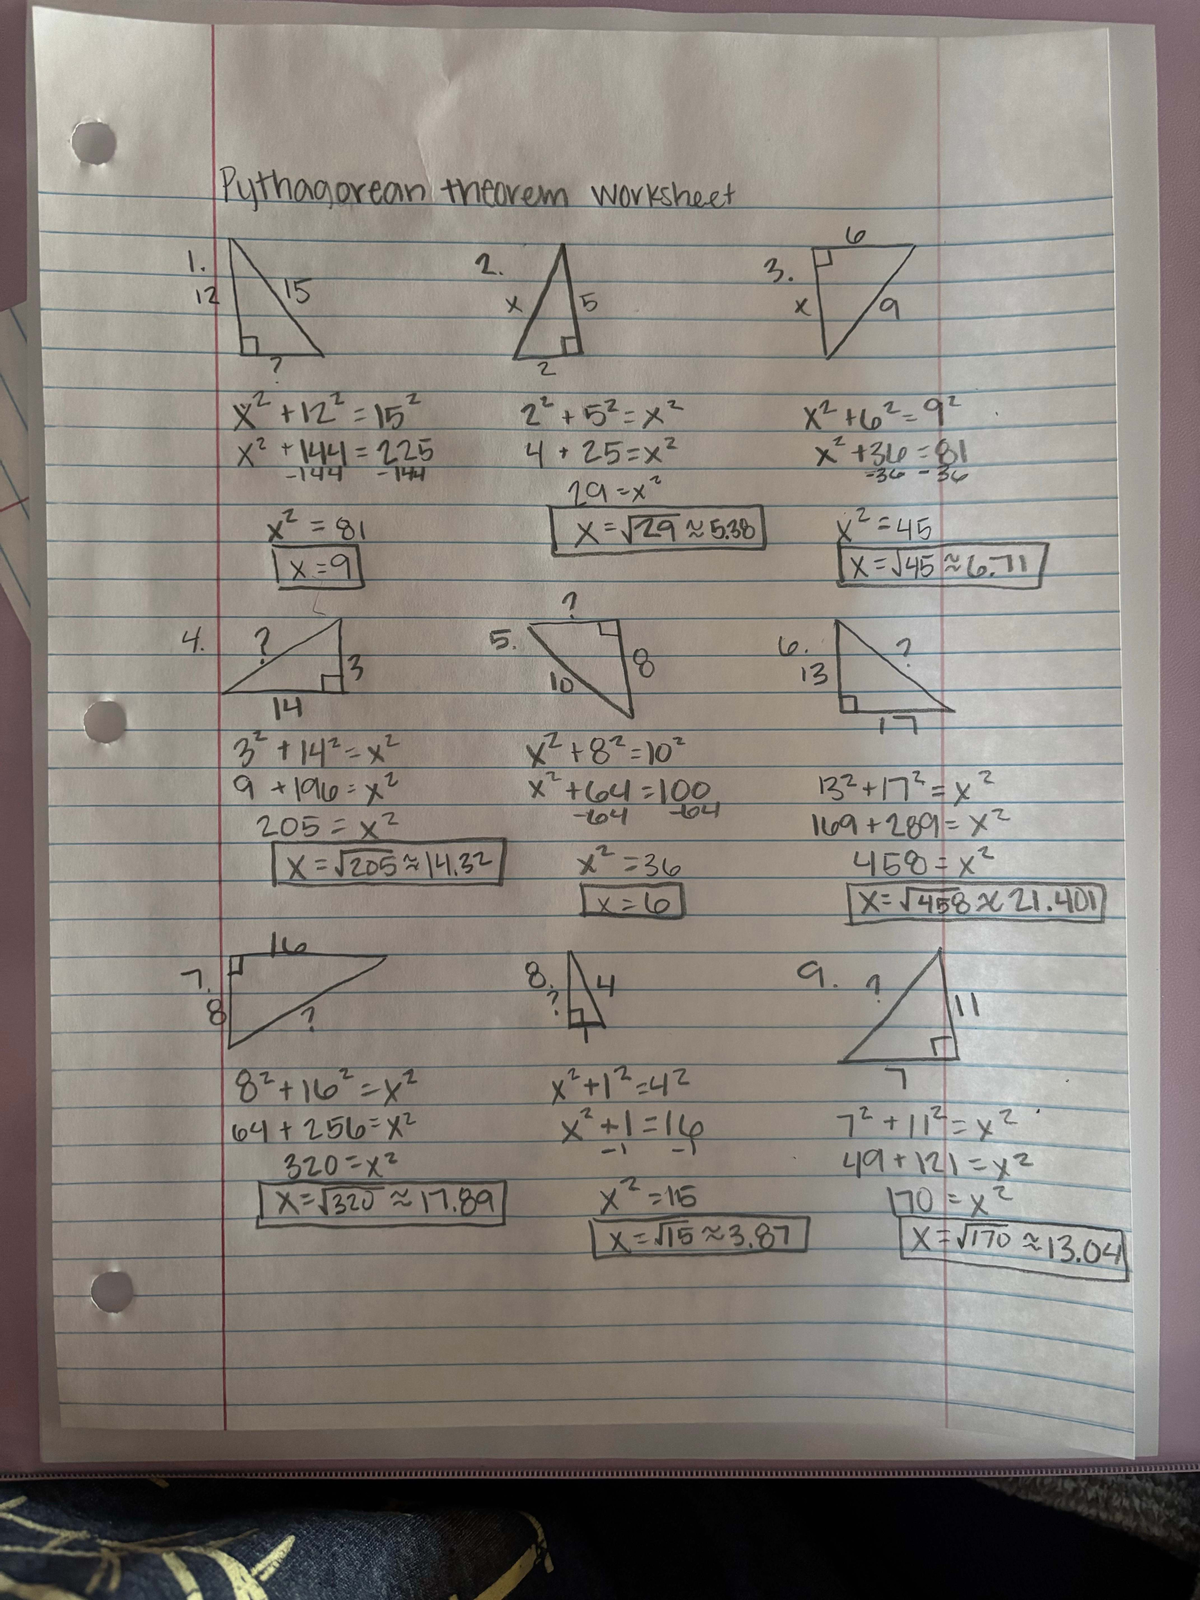 Pythagorean theorem worksheet
1.
12
15
?
x² + 12² = 15²
x² + 144 = 225
-144 -144
x² = 81
x = 9
2.
x
5
2
2² + 5² = x²
4 + 25 = x²
29 = x²
x = √29 ≈ 5.38
3.
6
x
9
x² + 6² = 9²
x² + 36 = 81
-36 - 36
x² = 45
x = √45 ≈ 6.71
4.
?
3
14
3² + 14² = x²
9 + 196 = x²
205 = x²
x = √205 ≈ 14.32
5.
?
8
10
x² + 8² = 10²
x² + 64 = 100
-64 -64
x² = 36
x = 6
6.
13
?
17
13² + 17² = x²
169 + 289 = x²
458 = x²
x = √458 ≈ 21.401
7.
16
8
?
8² + 16² = x²
64 + 256 = x²
320 = x²
x = √320 ≈ 17.89
8.
?
4
1
x² + 1² = 4²
x² + 1 = 16
-1 -1
x² = 15
x = √15 ≈ 3.87
9.
?
11
7
7² + 11² = x²
49 + 121 = x²
170 = x²
x = √170 ≈ 13.04